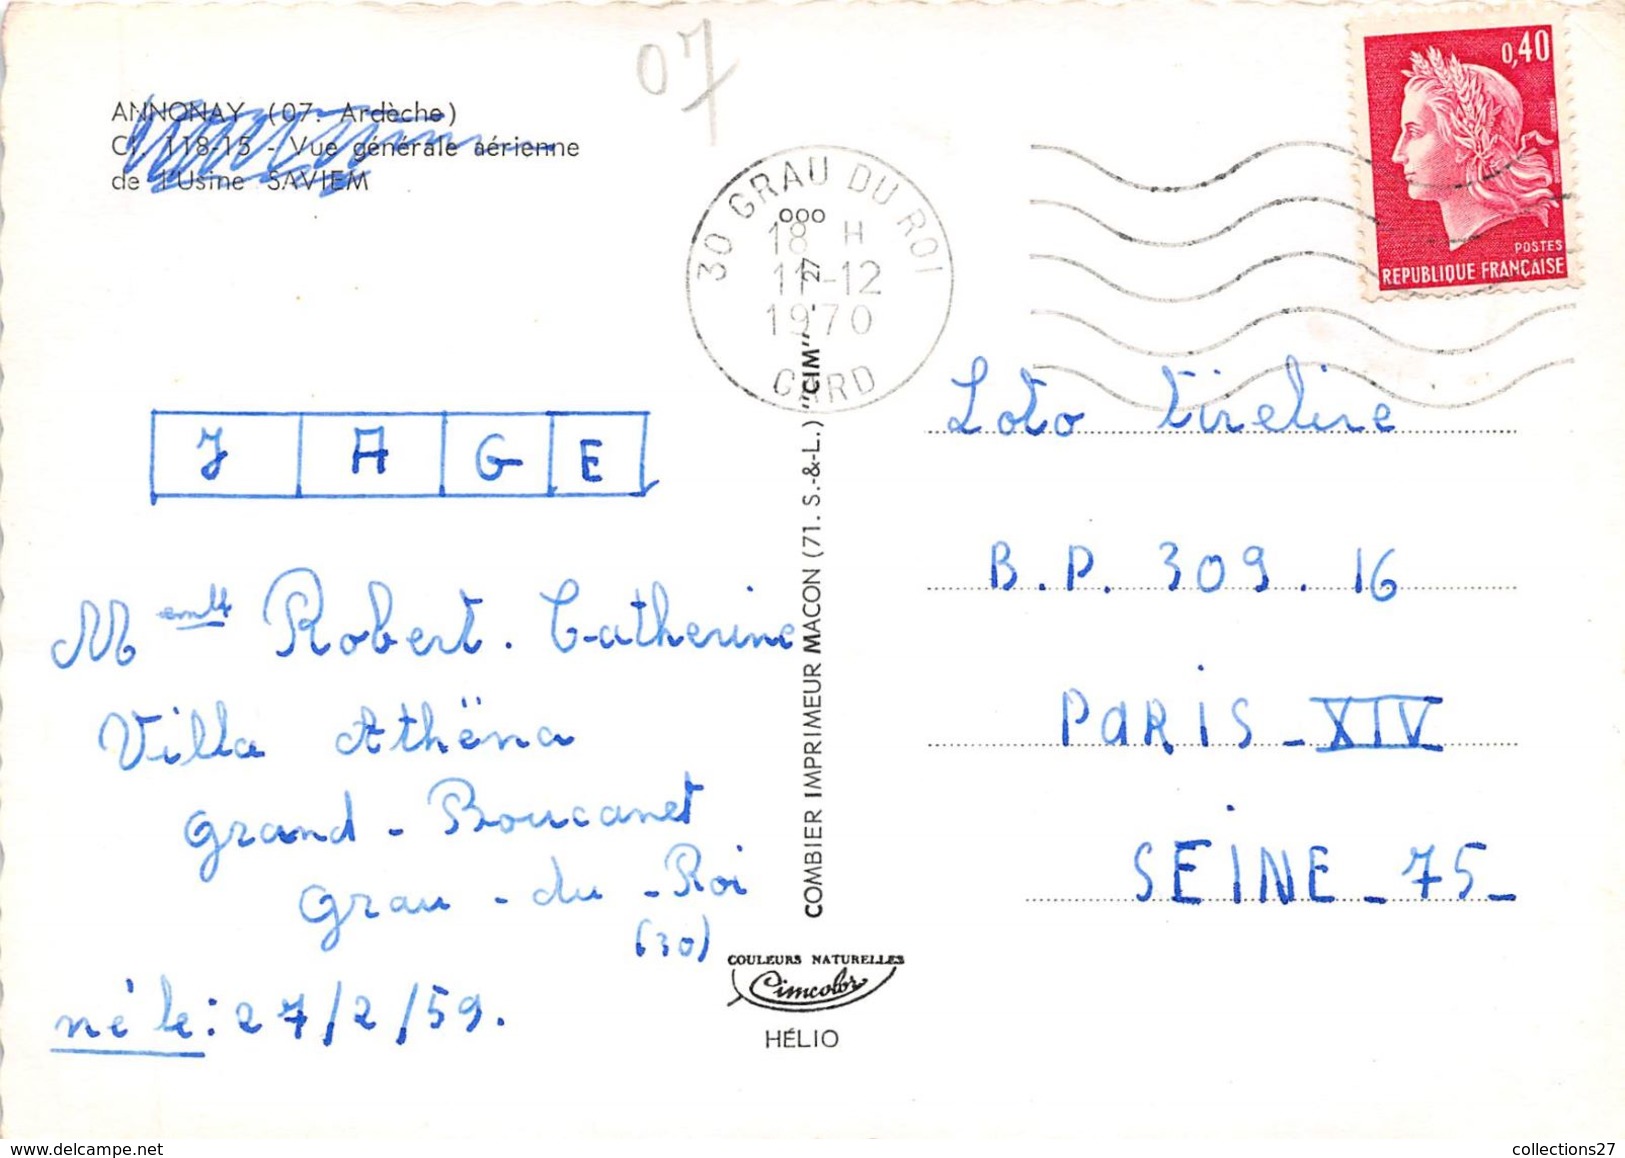 07
ANNONAY (07. Ardèche)
Cl. 118-15 - Vue générale aérienne
de l'Usine SAVIEM
0,40
POSTES
REPUBLIQUE FRANÇAISE
30 GRAU DU ROI
18 H
11-12
1970
GARD
J A G E
Robert. Catherine
Villa Athëna
Grand - Boucanet
Grau - du - Roi
(30)
né le : 27/2/59.
COMBIER IMPRIMEUR MACON (71. S.-&-L.) "CIM"
COULEURS NATURELLES
Cimcolor
HÉLIO
Loto tirelire
B.P. 309. 16
PARIS - XIV
SEINE - 75 -
collections27